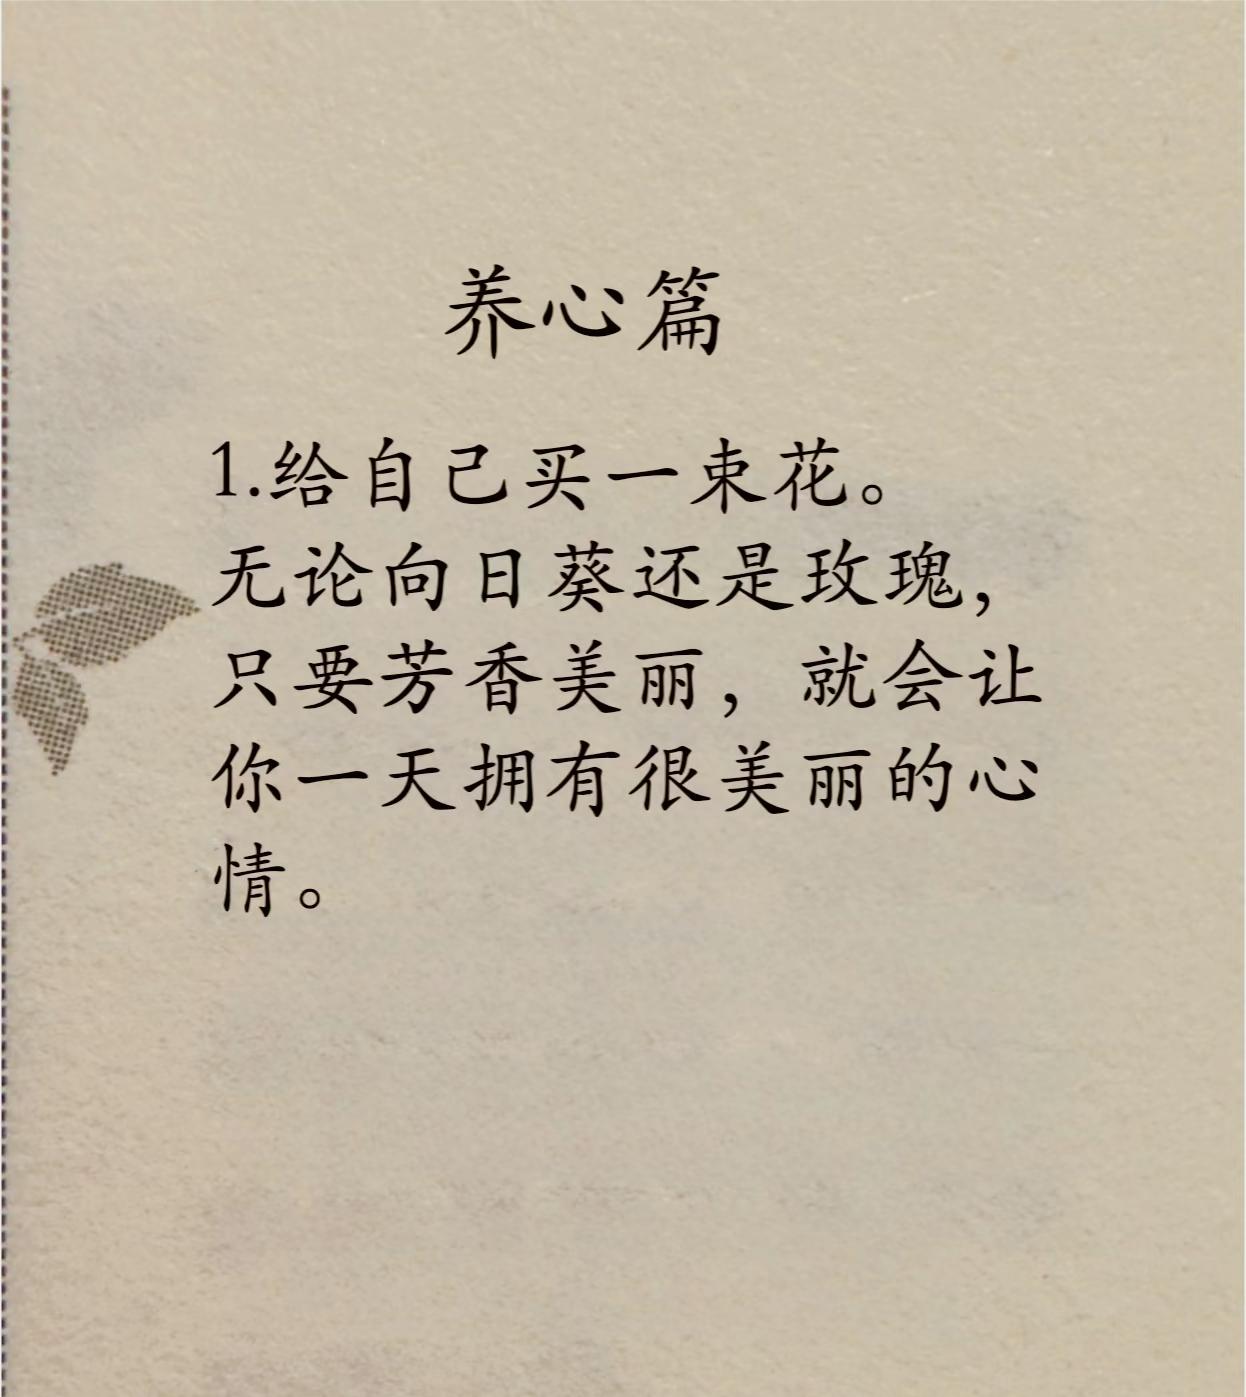 养心篇
1.给自己买一束花。
无论向日葵还是玫瑰，
只要芳香美丽，就会让
你一天拥有很美丽的心
情。